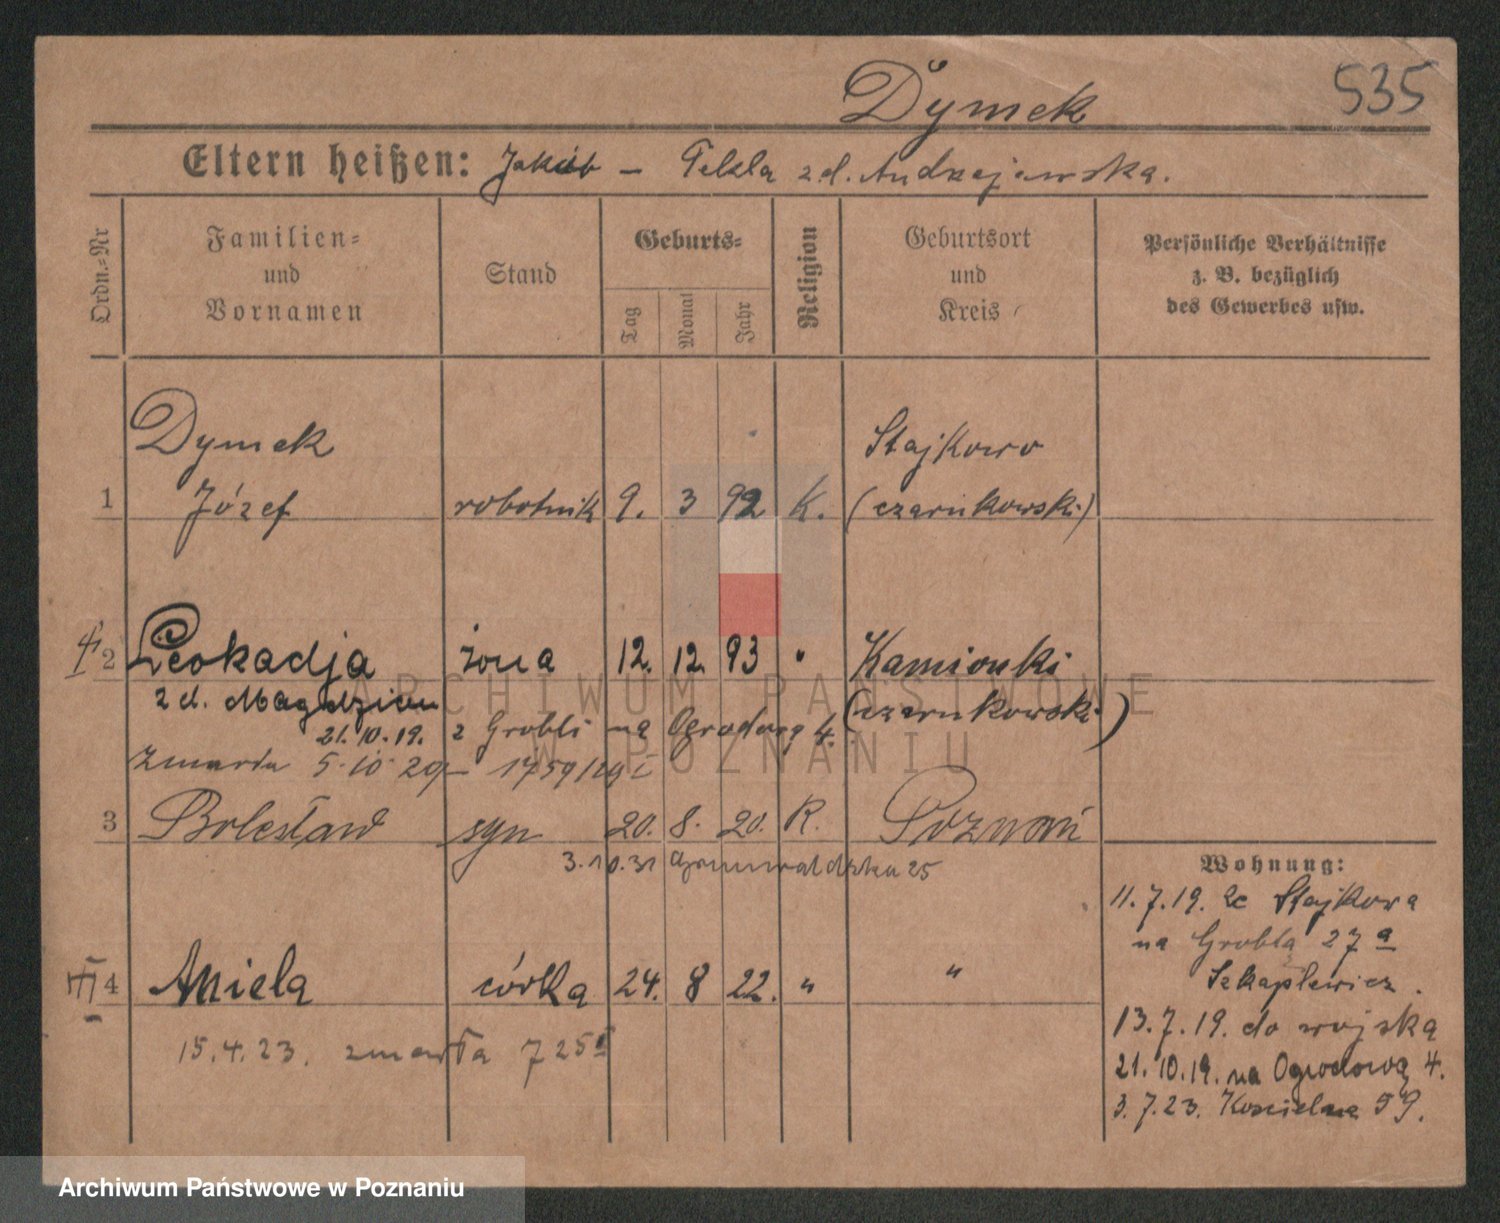 535
Dymek
Eltern heißen: Jakób – Tekla z d. Andrzejewska.
Ordn.-Nr
Familien-
und
Vornamen
Stand
Geburts-
Tag
Monat
Jahr
Religion
Geburtsort
und
Kreis
Persönliche Verhältnisse
z. B. bezüglich
des Gewerbes usw.
Dymek Stajkowo
1 Józef robotnik 9. 3 92 K. (czarnkowski)
2 Leokadja żona 12. 12. 93 " Kamionki
z d. Magdzian (czarnkowski)
21.10.19. z Grobli na Ogrodową 4.
zmarła 5.10.20 1759/20
3 Bolesław syn 20. 8. 20. K. Poznań
3.10.31 Grunwaldzka 25
III 4 Aniela córka 24. 8 22. " "
15.4.23. zmarła 725 II
Wohnung:
11.7.19. ze Stajkowa
na Grobla 27a
Szkaplewicz.
13.7.19. do wojska
21.10.19. na Ogrodową 4.
3.7.23. Kościelna 59.
ARCHIWUM PAŃSTWOWE
W POZNANIU
Archiwum Państwowe w Poznaniu